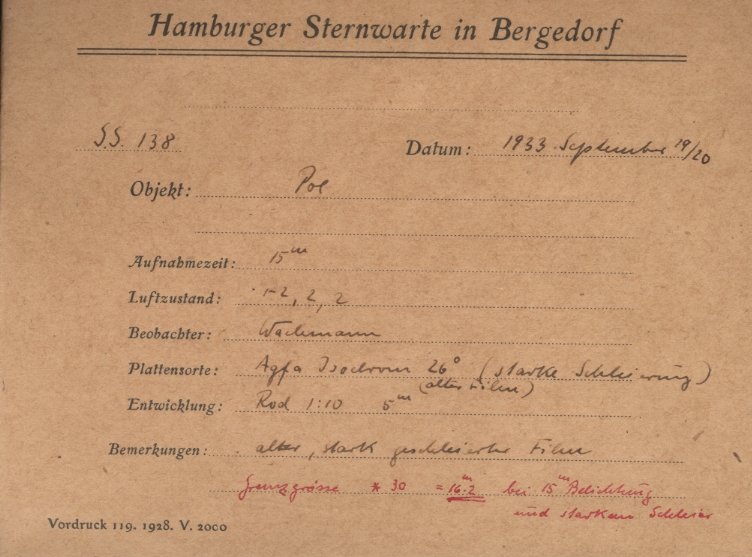 Hamburger Sternwarte in Bergedorf
S.S. 138
Datum: 1933 September 19/20
Objekt: Pol
Aufnahmezeit: 15ᵐ
Luftzustand: 1-2, 2, 2
Beobachter: Wachmann
Plattensorte: Agfa Isochrom 26° (starke Schleierung)
(alter Film)
Entwicklung: Rod 1:10 5ᵐ
Bemerkungen: alter, stark geschleierter Film
Grenzgrösse * 30 = 16.2ᵐ bei 15ᵐ Belichtung
und starkem Schleier
Vordruck 119. 1928. V. 2000